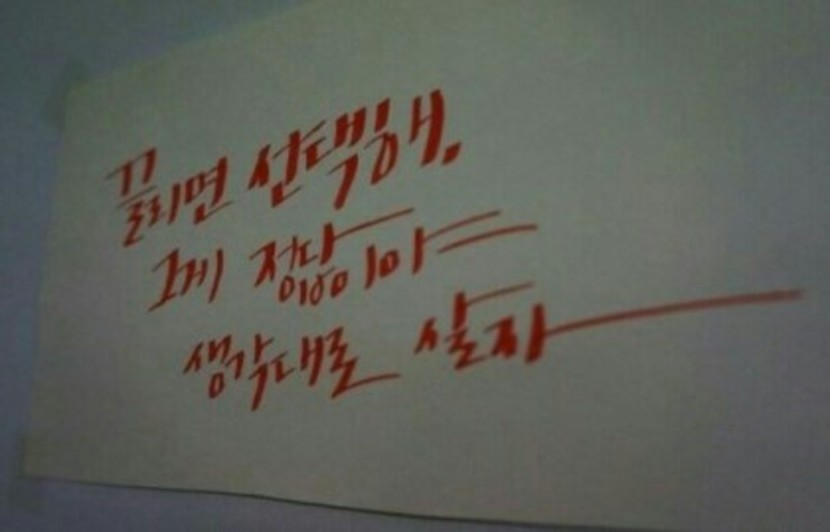 끌리면 선택해.
그게 정답이야
생각대로 살자